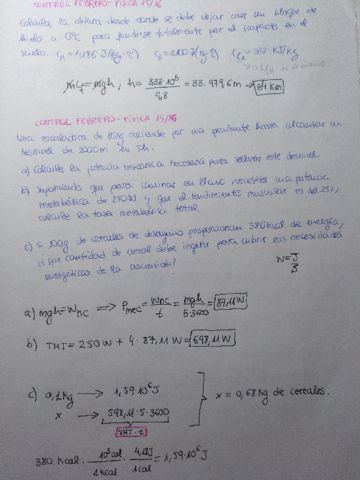 CONTROL FEBRERO-FÍSICA 15/16
Calcula la altura desde donde se debe dejar caer un bloque de
hielo a 0ºC para fundirse totalmente por el impacto en el
suelo.
h = 333·10³ / 9,8 = 33.979,6 m →
CONTROL FEBRERO-FÍSICA 15/16
Una escaladora de 80kg asciende por una pendiente hasta alcanzar un
desnivel de 2000m en 5h.
a) Calcule la potencia mecánica necesaria para salvar este desnivel
b) Suponiendo que para caminar en llano necesita una potencia
metabólica de 250W y que el rendimiento muscular es del 25%,
calcule la tasa metabólica total.
c) Si 100g de cereales de desayuno proporcionan 380kcal de energía,
¿qué cantidad de cereal debe ingerir para cubrir las necesidades
energéticas de la ascensión?
W = J/s
a) mgh = Wnc ⟹ Pmec = Wnc/t = mgh/5·3600 = 87,11 W
b) TMT = 250W + 4·87,11W = 598,11 W
c) 0,1Kg → 1,59·10⁶J
x → 598,11·5·3600
TMT·t
x = 0,68 Kg de cereales.
380 Kcal · 10³cal/1Kcal · 4,18J/1cal = 1,59·10⁶J